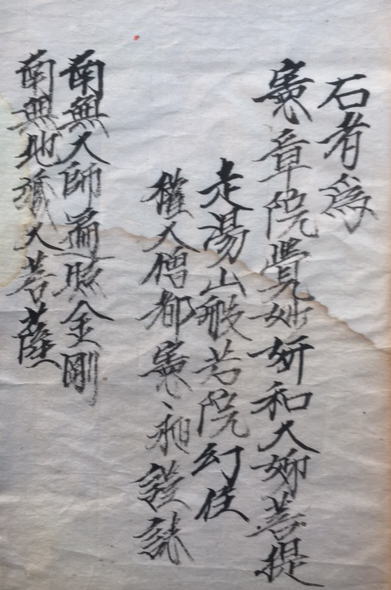 右者為
憲章院覺妙妍和大姉菩提
走湯山般若院幻住
權大僧都憲謹誌
南無大師遍照金剛
南無地蔵大菩薩